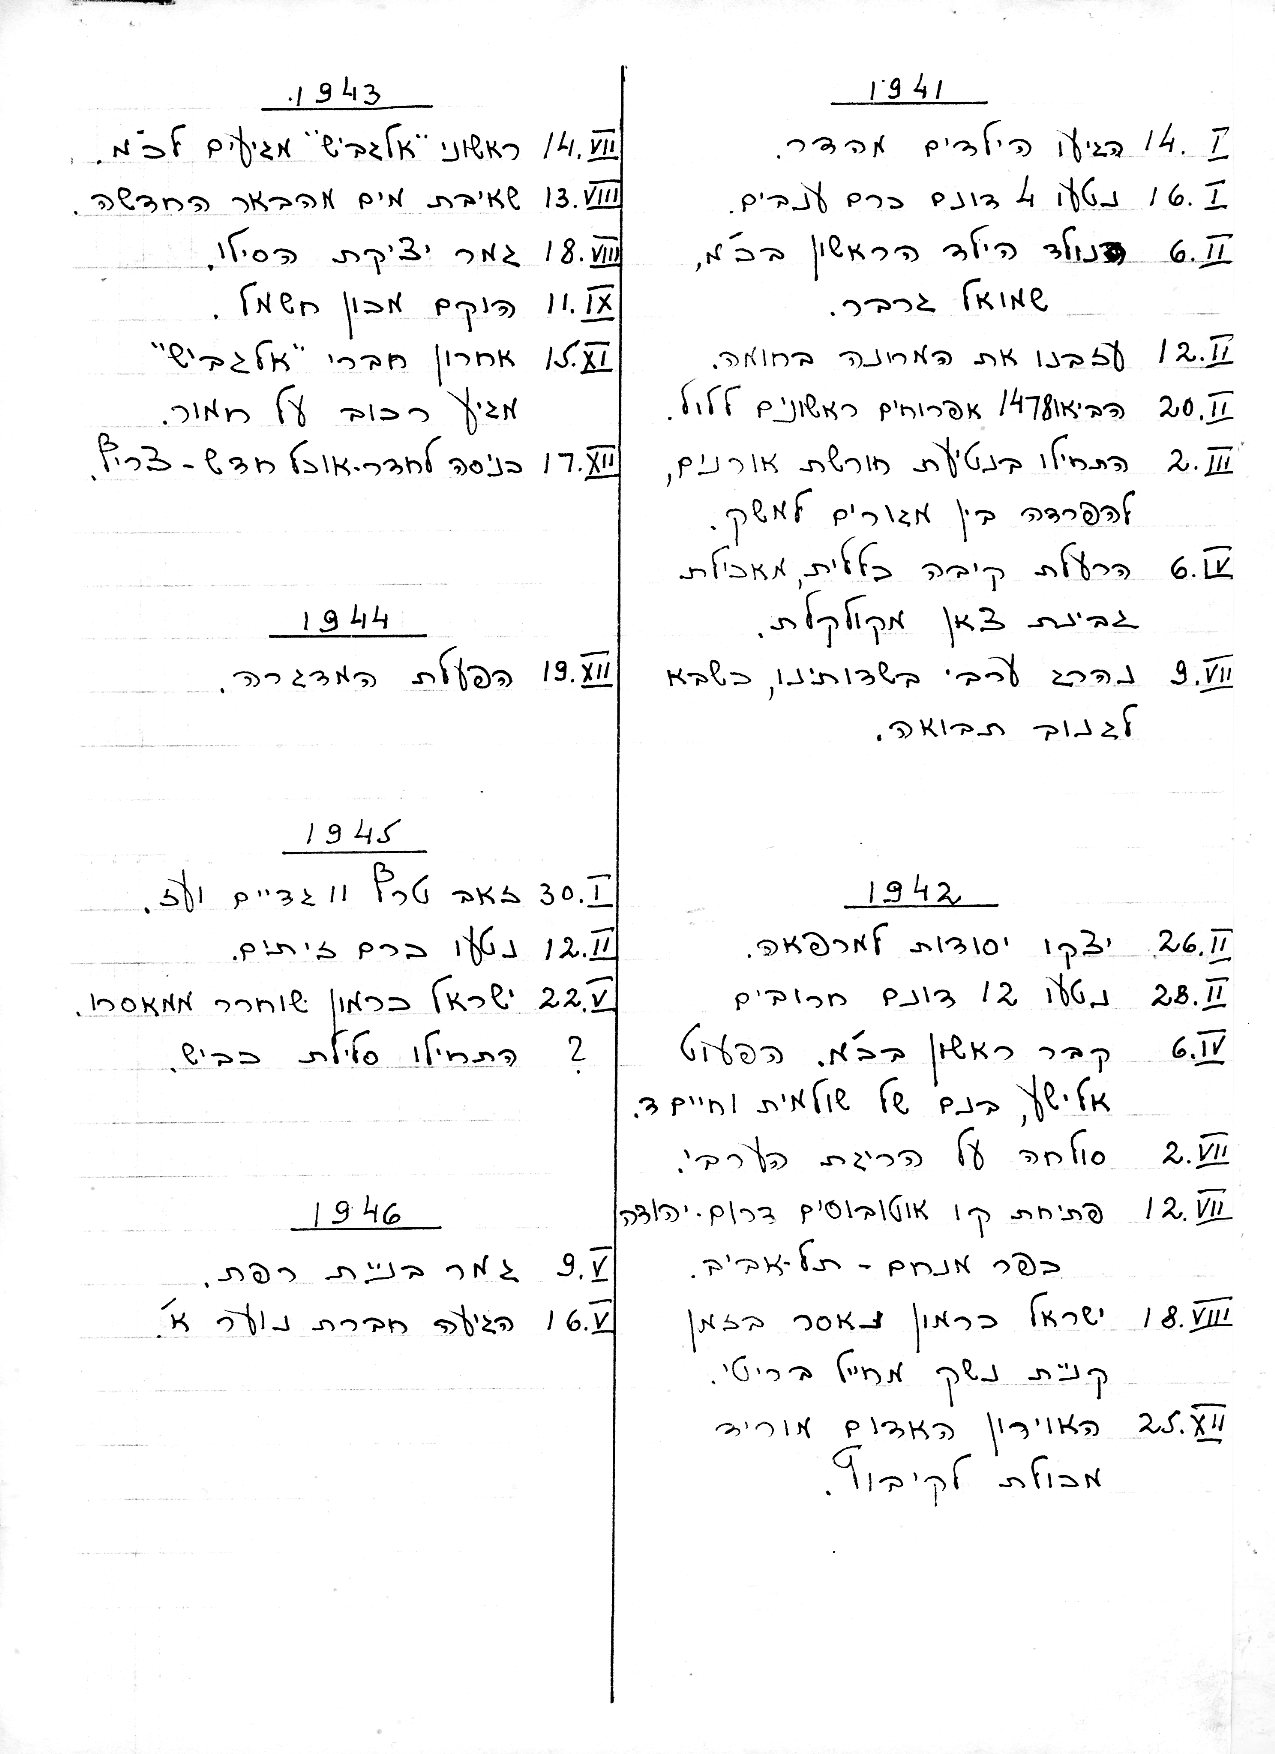 1941
14.I הגיעו הילדים מהדר.
16.I נטעו 4 דונם כרם ענבים.
6.II נולד הילד הראשון בכ"מ,
שמואל גרבר.
12.II עזבנו את המחנה בחומה.
20.II הביאו 1478 אפרוחים ראשונים ללול.
2.III התחילו בנטיעת חורשת אורנים,
להפרדה בין מגורים למשק.
6.IV הרעלת קיבה כללית, מאכילת
גבינת צאן מקולקלת.
9.VII נהרג ערבי בשדותינו, כשבא
לגנוב תבואה.
1942
26.II יצקו יסודות למרפאה.
28.II נטעו 12 דונם חרובים
6.IV קבר ראשון בכ"מ. הפעוט
אלישע, בנם של שולמית וחיים ד.
2.VII סולחה על הריגת הערבי.
12.VII פתיחת קו אוטובוסים דרום-יהודה
כפר מנחם - תל-אביב.
18.VIII ישראל כרמון נאסר בזמן
קניית נשק מחייל בריטי.
25.XII האוירון האדום מוריד
מכולת לקיבוץ.
1943
14.VII ראשוני "אלגביש" מגיעים לכ"מ.
13.VIII שאיבת מים מהבאר החדשה.
18.VIII גמר יציקת הסילו.
11.IX הוקם מכון חשמל.
15.XI אחרון חברי "אלגביש"
מגיע רכוב על חמור.
17.XII כניסה לחדר-אוכל חדש - צריף.
1944
19.XII הפעלת המדגרה.
1945
30.I זאב טרף 11 גדיים ועז.
12.II נטעו כרם זיתים.
22.V ישראל כרמון שוחרר ממאסרו.
? התחילו סלילת כביש.
1946
9.V גמר בניית רפת.
16.V הגיעה חברת נוער א'.